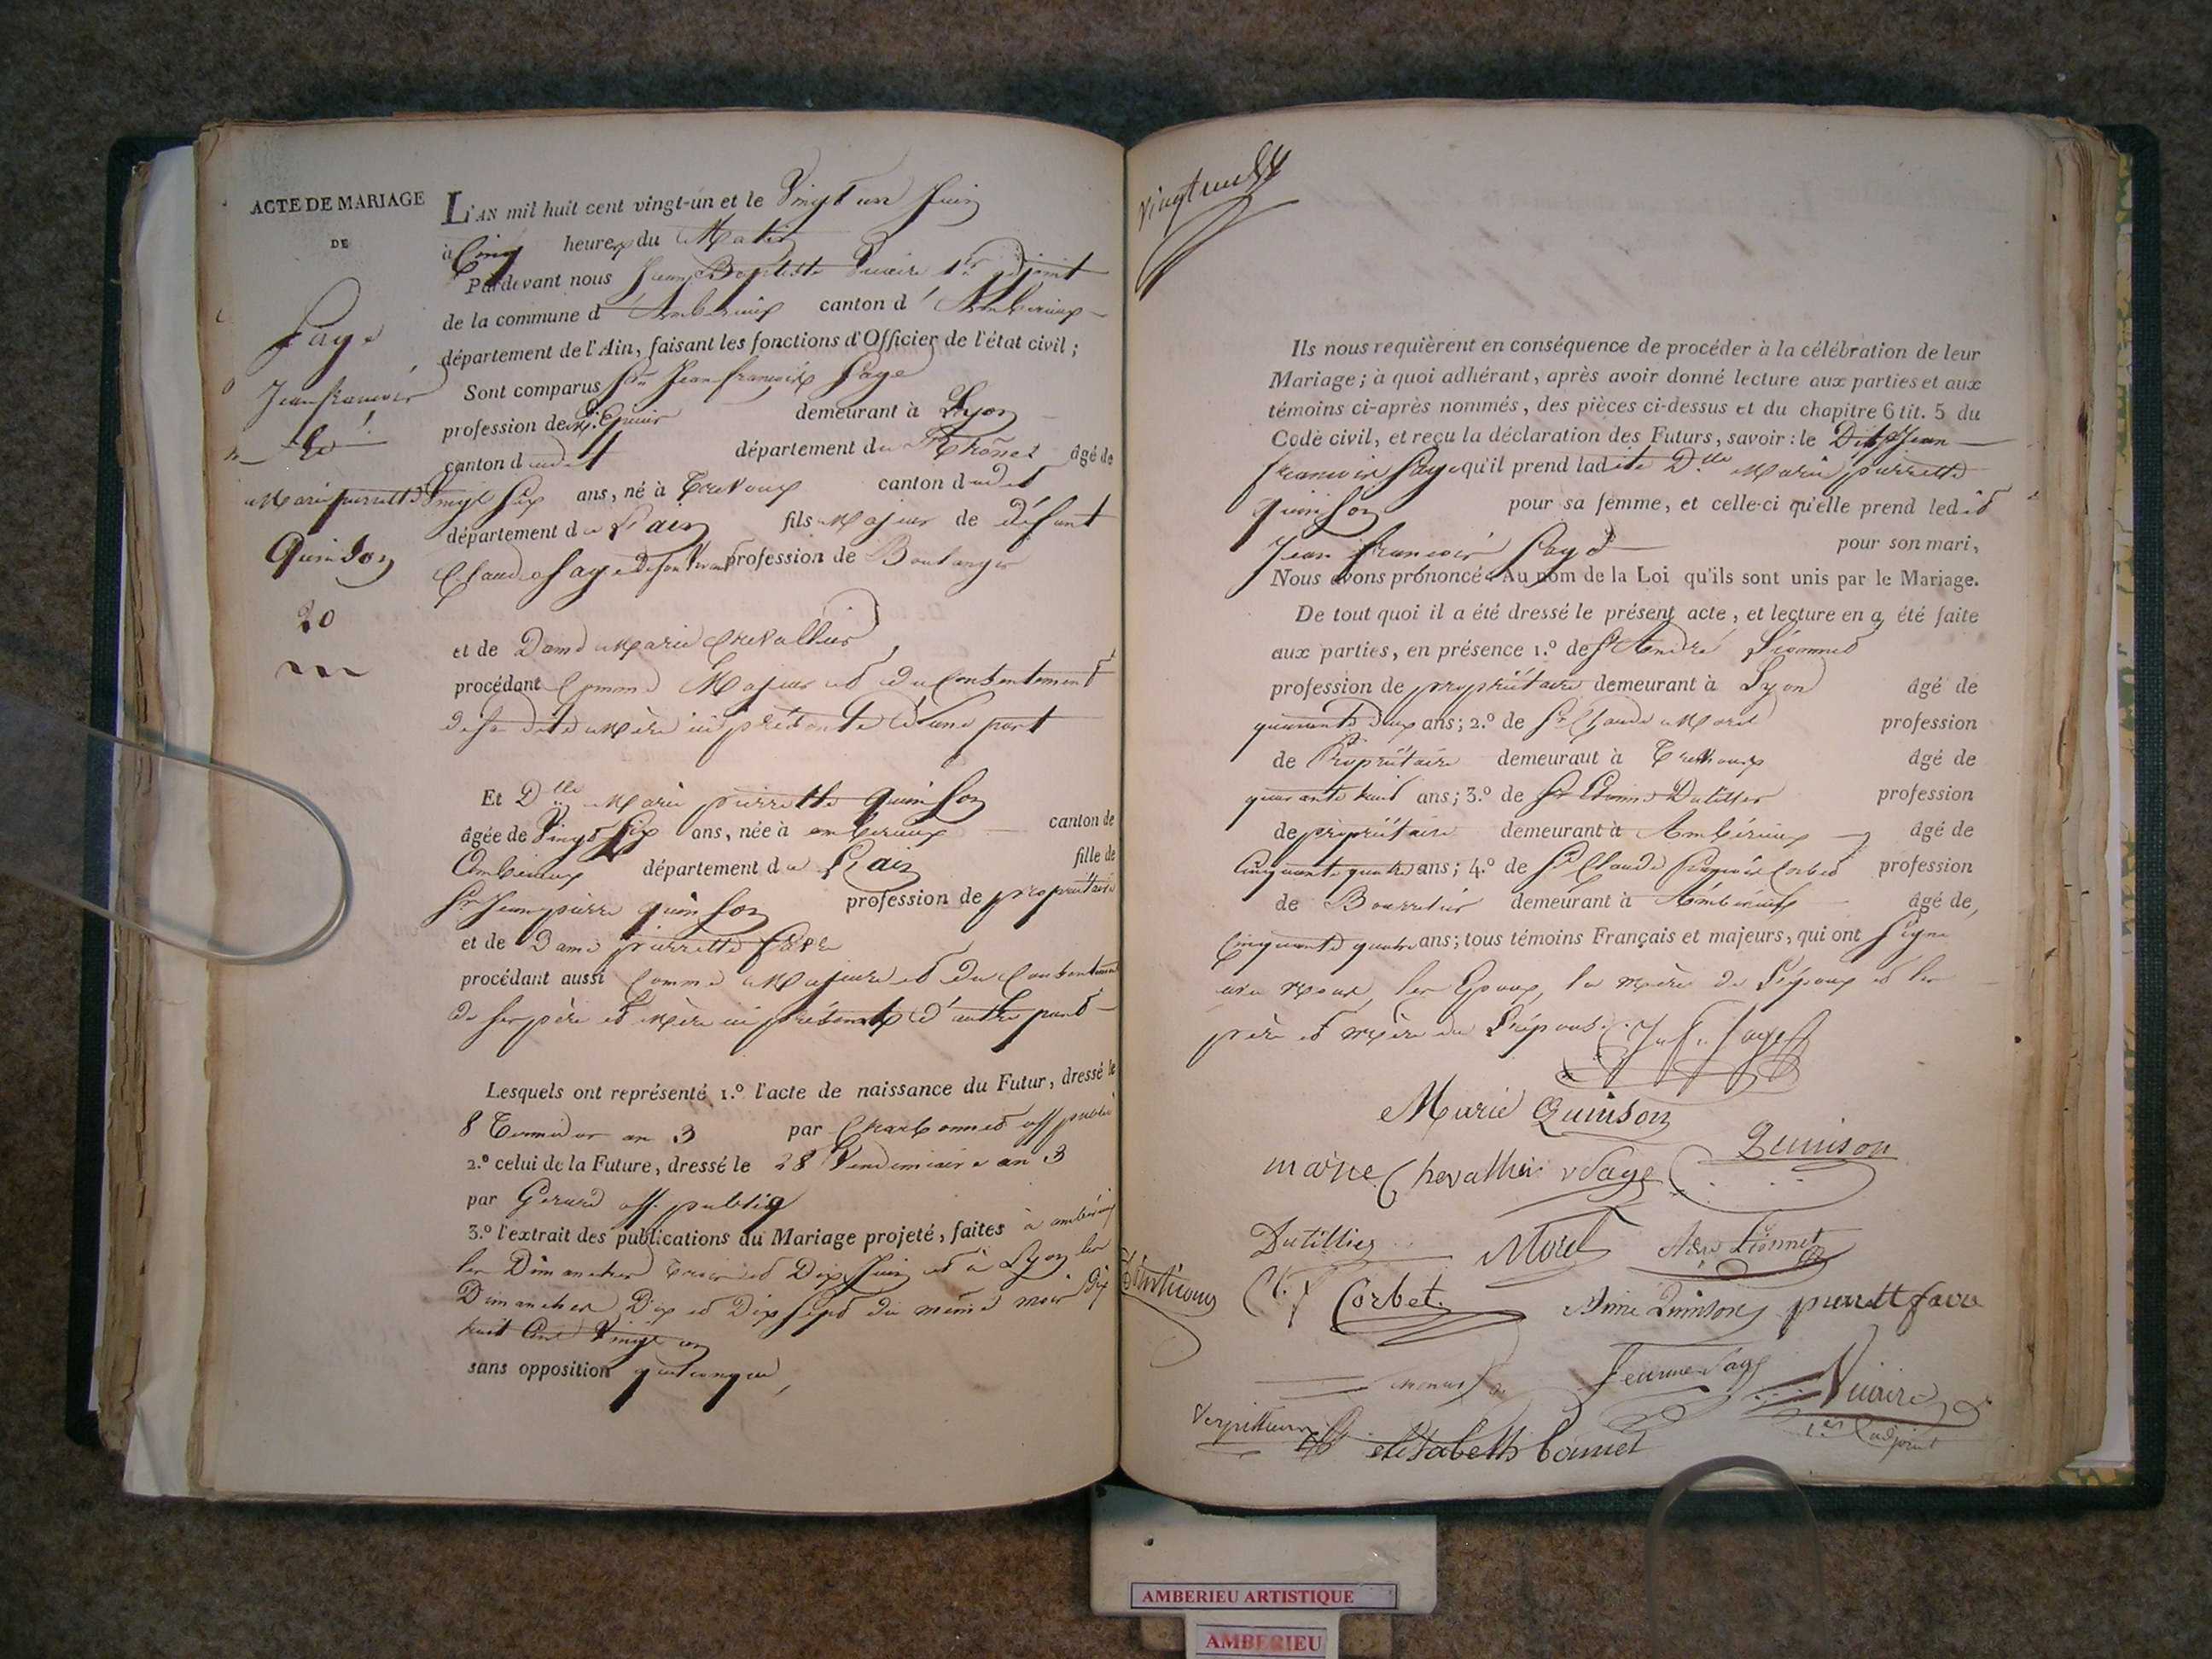 ACTE DE MARIAGE
DE
Sage
Jean françois
Et
Marie pierrette
Quinson
20
L'AN mil huit cent vingt-un et le Vingt un Juin
à Cinq heures du Matin
Pardevant nous Jean Baptiste Vicaire 1er adjoint
de la commune d'Ambérieux canton d'Ambérieux
département de l'Ain, faisant les fonctions d'Officier de l'état civil;
Sont comparus Jean françois Sage
profession de demeurant à Lyon
canton dudit département du Rhône âgé de
Vingt Six ans, né à Trévoux canton dudit
département de L'ain fils Majeur de défunt
Claude Sage de son vivant profession de Boulanger
et de Dame Marie Chevallier
procédant Comme Majeur et du Consentement
de sa dite Mère ici présente d'une part
Et Dlle Marie pierrette quinson
âgée de Vingt Six ans, née à ambérieux canton de
Ambérieux département de L'ain fille de
Sr Jean pierre quinson profession de propriétaire
et de Dame pierrette favre
procédant aussi Comme Majeure et du Consentement
de ses père et Mère ici présents d'autre part
Lesquels ont représenté 1.º l'acte de naissance du Futur, dressé le
8 Termidor an 3 par Charbonnet off public
2.º celui de la Future, dressé le 28 Vendemiaire an 3
par Gerard off. public
3.º l'extrait des publications du Mariage projeté, faites à ambérieux
les Dimanches Trois et Dix Juin et à Lyon les
Dimanches Dix et Dix Sept du même mois dix
huit Cent Vingt un
sans opposition quelconque,
Vingt un
Ils nous requièrent en conséquence de procéder à la célébration de leur
Mariage; à quoi adhérant, après avoir donné lecture aux parties et aux
témoins ci-après nommés, des pièces ci-dessus et du chapitre 6 tit. 5 du
Code civil, et reçu la déclaration des Futurs, savoir: le Dit Jean
francois Sage qu'il prend ladite Dlle Marie pierrette
quinson pour sa femme, et celle-ci qu'elle prend ledit
Jean francois Sage pour son mari,
Nous avons prononcé Au nom de la Loi qu'ils sont unis par le Mariage.
De tout quoi il a été dressé le présent acte, et lecture en a été faite
aux parties, en présence 1.º de Sr André Lionnet
profession de propriétaire demeurant à Lyon âgé de
quarante deux ans; 2.º de Sr Claude Morel profession
de Propriétaire demeurant à Trévoux âgé de
quarante huit ans; 3.º de Sr Etienne Dutillier profession
de propriétaire demeurant à Ambérieux âgé de
Cinquante quatre ans; 4.º de Sr Claude françois Corbet profession
de Bourrelier demeurant à Ambérieux âgé de
Cinquante quatre ans; tous témoins Français et majeurs, qui ont Signé
avec Nous, les Epoux, la mère de L'époux et les
père et mère de L'épouse. J. f. Sage
Marie Quinson
Quinson
marie Chevallier v Sage
Dutillier Morel Lionnet
Cl. f Corbet Quinson pierrette favre
Jeanne Sage Vicaire
1er adjoint
elisabeth
AMBERIEU ARTISTIQUE
AMBERIEU